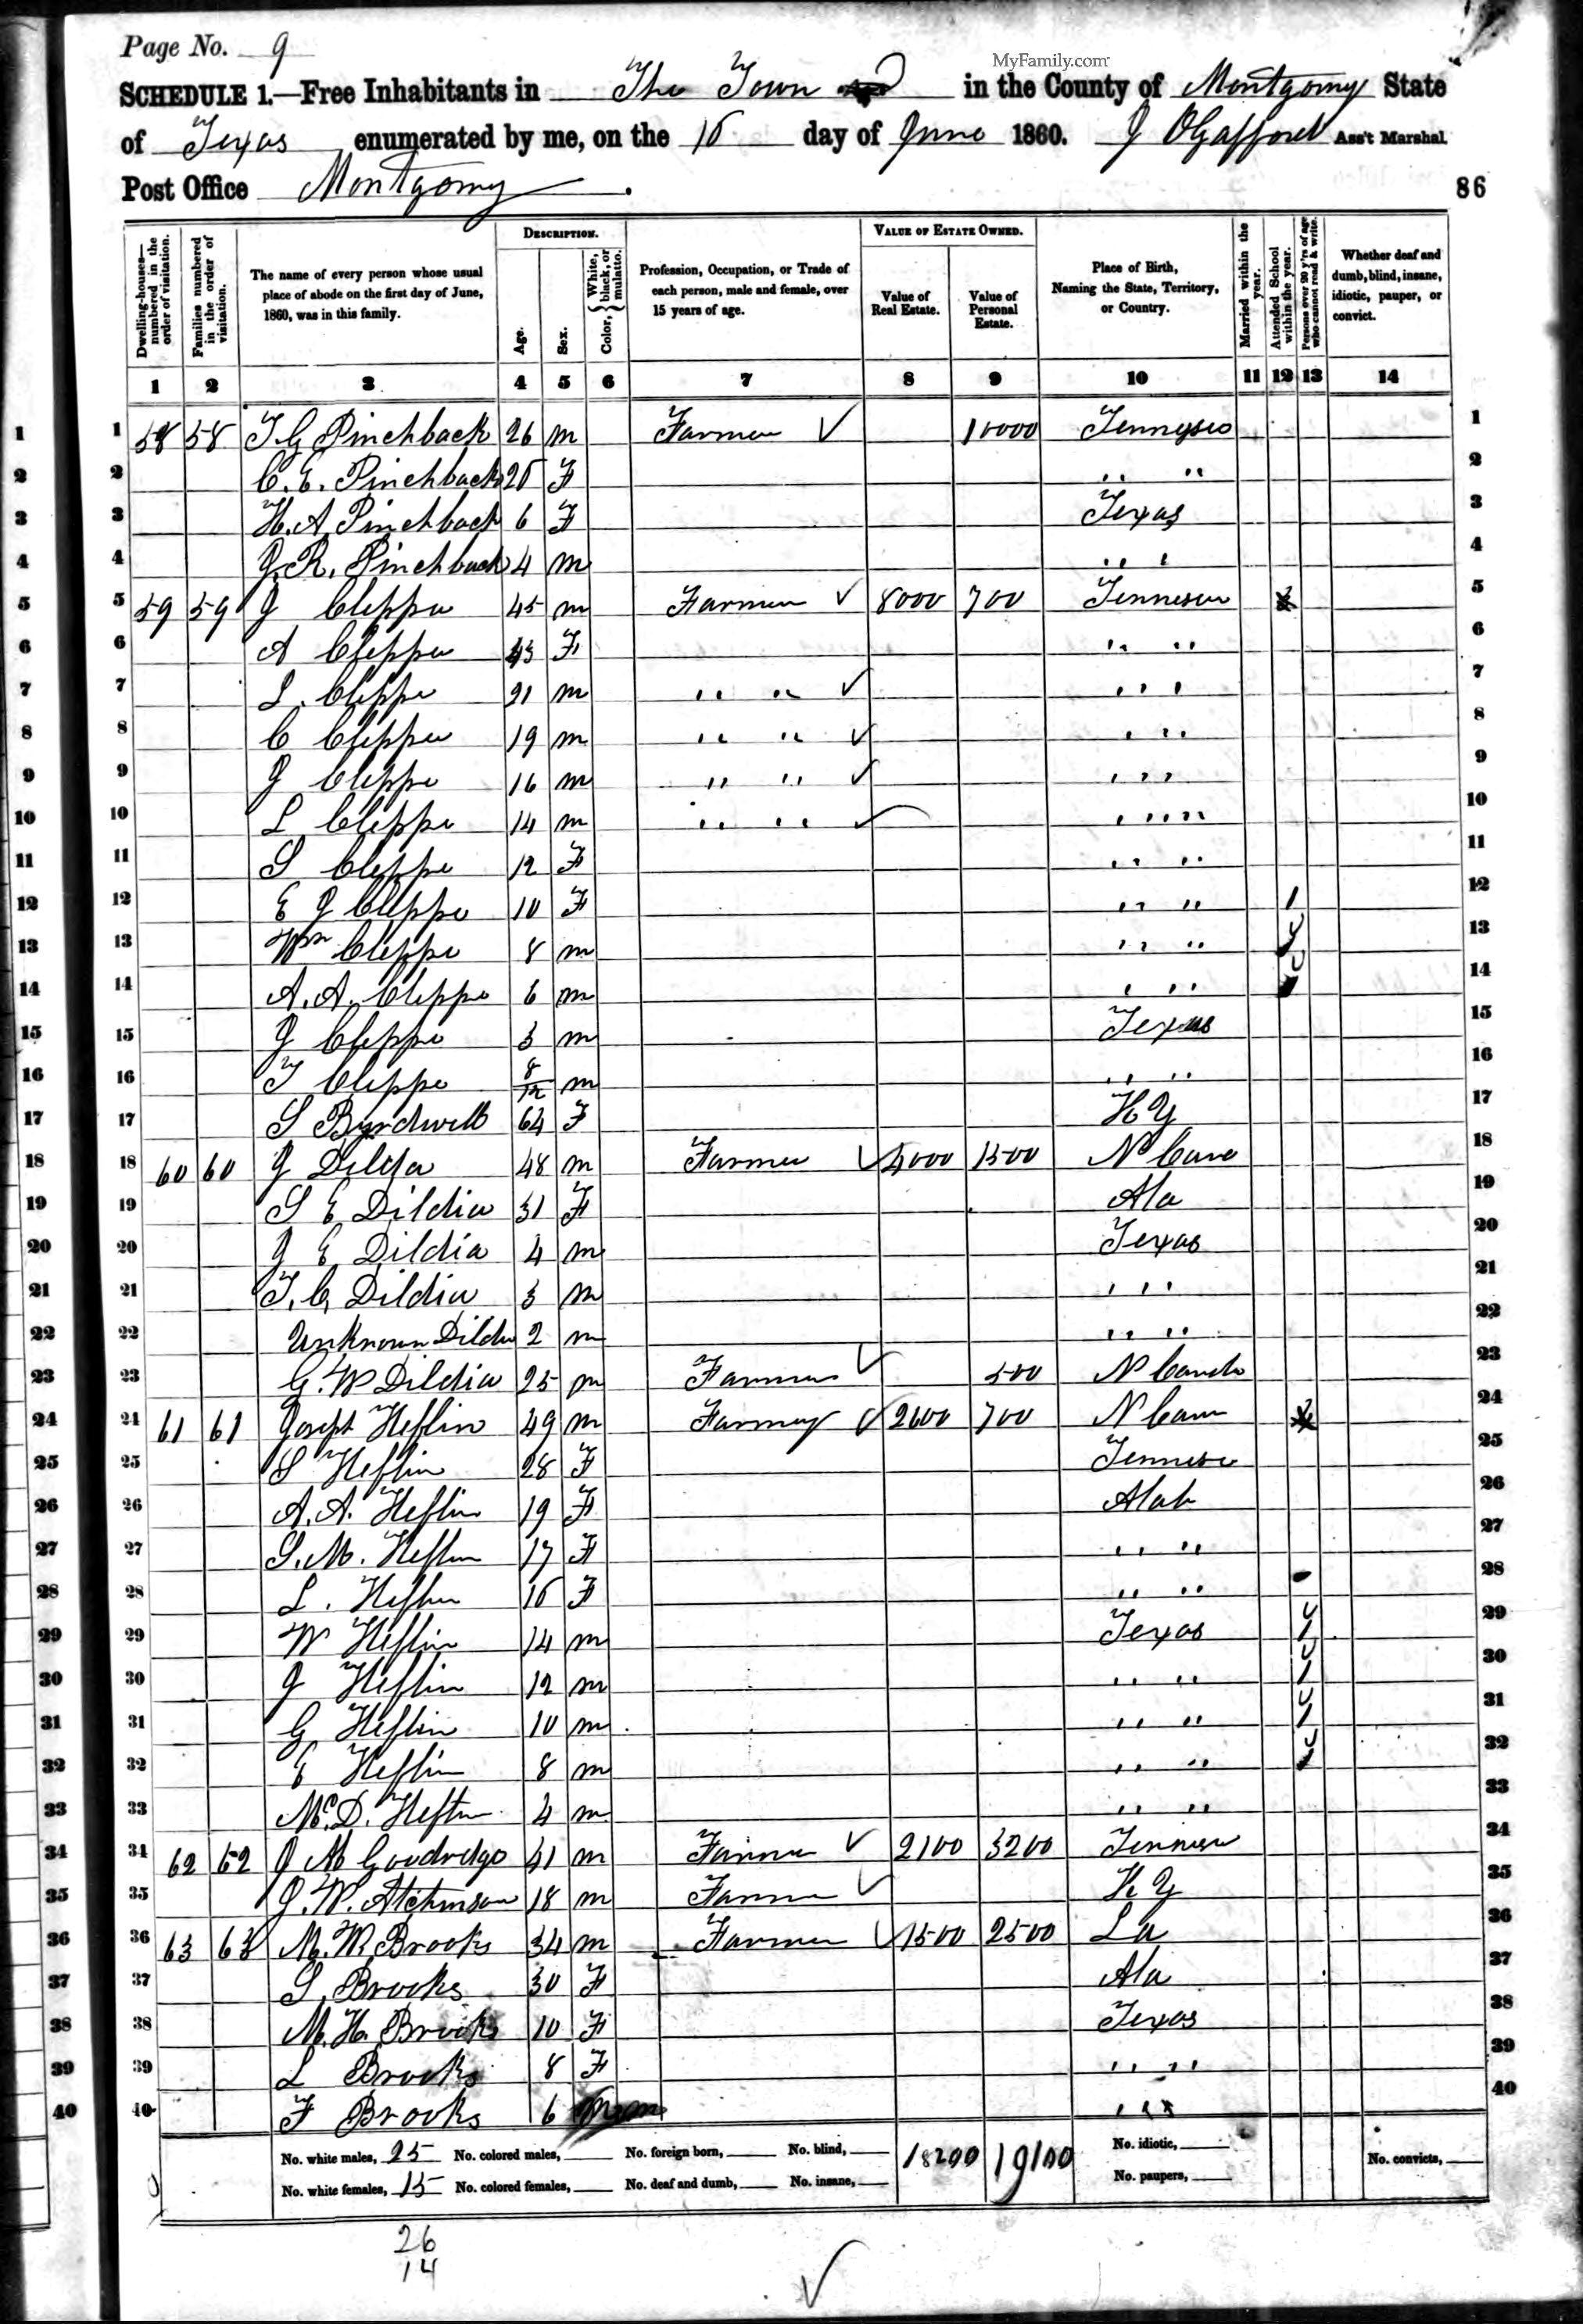 Page No. 9
MyFamily.com
SCHEDULE 1.—Free Inhabitants in The Town in the County of Montgomy State
of Texas enumerated by me, on the 16 day of June 1860. J O Gafford Ass't Marshal.
Post Office Montgomy.
86
Dwelling-houses—numbered in the order of visitation.
Families numbered in the order of visitation.
The name of every person whose usual place of abode on the first day of June, 1860, was in this family.
DESCRIPTION.
Age.
Sex.
Color, { White, black, or mulatto.
Profession, Occupation, or Trade of each person, male and female, over 15 years of age.
VALUE OF ESTATE OWNED.
Value of Real Estate.
Value of Personal Estate.
Place of Birth, Naming the State, Territory, or Country.
Married within the year.
Attended School within the year.
Persons over 20 y'rs of age who cannot read & write.
Whether deaf and dumb, blind, insane, idiotic, pauper, or convict.
1 2 3 4 5 6 7 8 9 10 11 12 13 14
1 1 58 58 T. G Pinchback 26 m Farmer ✓ 10000 Tennessee 1
2 2 C. E. Pinchback F " " 2
3 3 H. A Pinchback 6 F Texas 3
4 4 J. R. Pinchback 4 m " " 4
5 5 59 59 J Cleppe 45 m Farmer ✓ 8000 700 Tennessee 5
6 6 A Cleppe 43 F " " 6
7 7 L. Cleppe 21 m " " ✓ " " 7
8 8 C Cleppe 19 m " " ✓ " " 8
9 9 J Cleppe 16 m " " ✓ " " 9
10 10 L Cleppe 14 m " " ✓ " " 10
11 11 S Cleppe 12 F " " 11
12 12 E J Cleppe 10 F " " / 12
13 13 Wm Cleppe 8 m " " 13
14 14 A. A. Cleppe 6 m " " 14
15 15 J Cleppe 3 m Texas 15
16 16 T Cleppe 8/12 m " " 16
17 17 S Byrdwell 64 F K Y 17
18 18 60 60 J Dildia 48 m Farmer ✓ 1500 N Caro 18
19 19 S E Dildia 31 F Ala 19
20 20 J E Dildia 4 m Texas 20
21 21 T. C. Dildia 3 m " " 21
22 22 Unknown Dildia 2 m " " 22
23 23 G. W Dildia 25 m Farmer ✓ 500 N Carolo 23
24 24 61 61 Joseph Heflin 49 m Farmer ✓ 2600 700 N Caro 24
25 25 S Heflin 28 F Tennesse 25
26 26 A. A. Heflin 19 F Alab 26
27 27 S. M. Heflin 17 F " " 27
28 28 L. Heflin 16 F " " 28
29 29 W Heflin 14 m Texas / 29
30 30 J Heflin 12 m " " / 30
31 31 G Heflin 10 m " " / 31
32 32 E Heflin 8 m " " / 32
33 33 Mc. D. Heflin 4 m " " 33
34 34 62 62 J M Goodrige 41 m Farmer ✓ 2100 3200 Tennese 34
35 35 J. W. Atchinson 18 m Farmer ✓ K Y 35
36 36 63 63 M. W Brooks 34 m Farmer ✓ 1500 2500 La 36
37 37 S. Brooks 30 F Ala 37
38 38 M. H. Brooks 10 F Texas 38
39 39 L Brooks 8 F " " 39
40 40 F Brooks 6 m " " 40
No. white males, 25 No. colored males, No. foreign born, No. blind, 18200 19100 No. idiotic, No. convicts,
No. white females, 15 No. colored females, No. deaf and dumb, No. insane, No. paupers,
26
14
✓